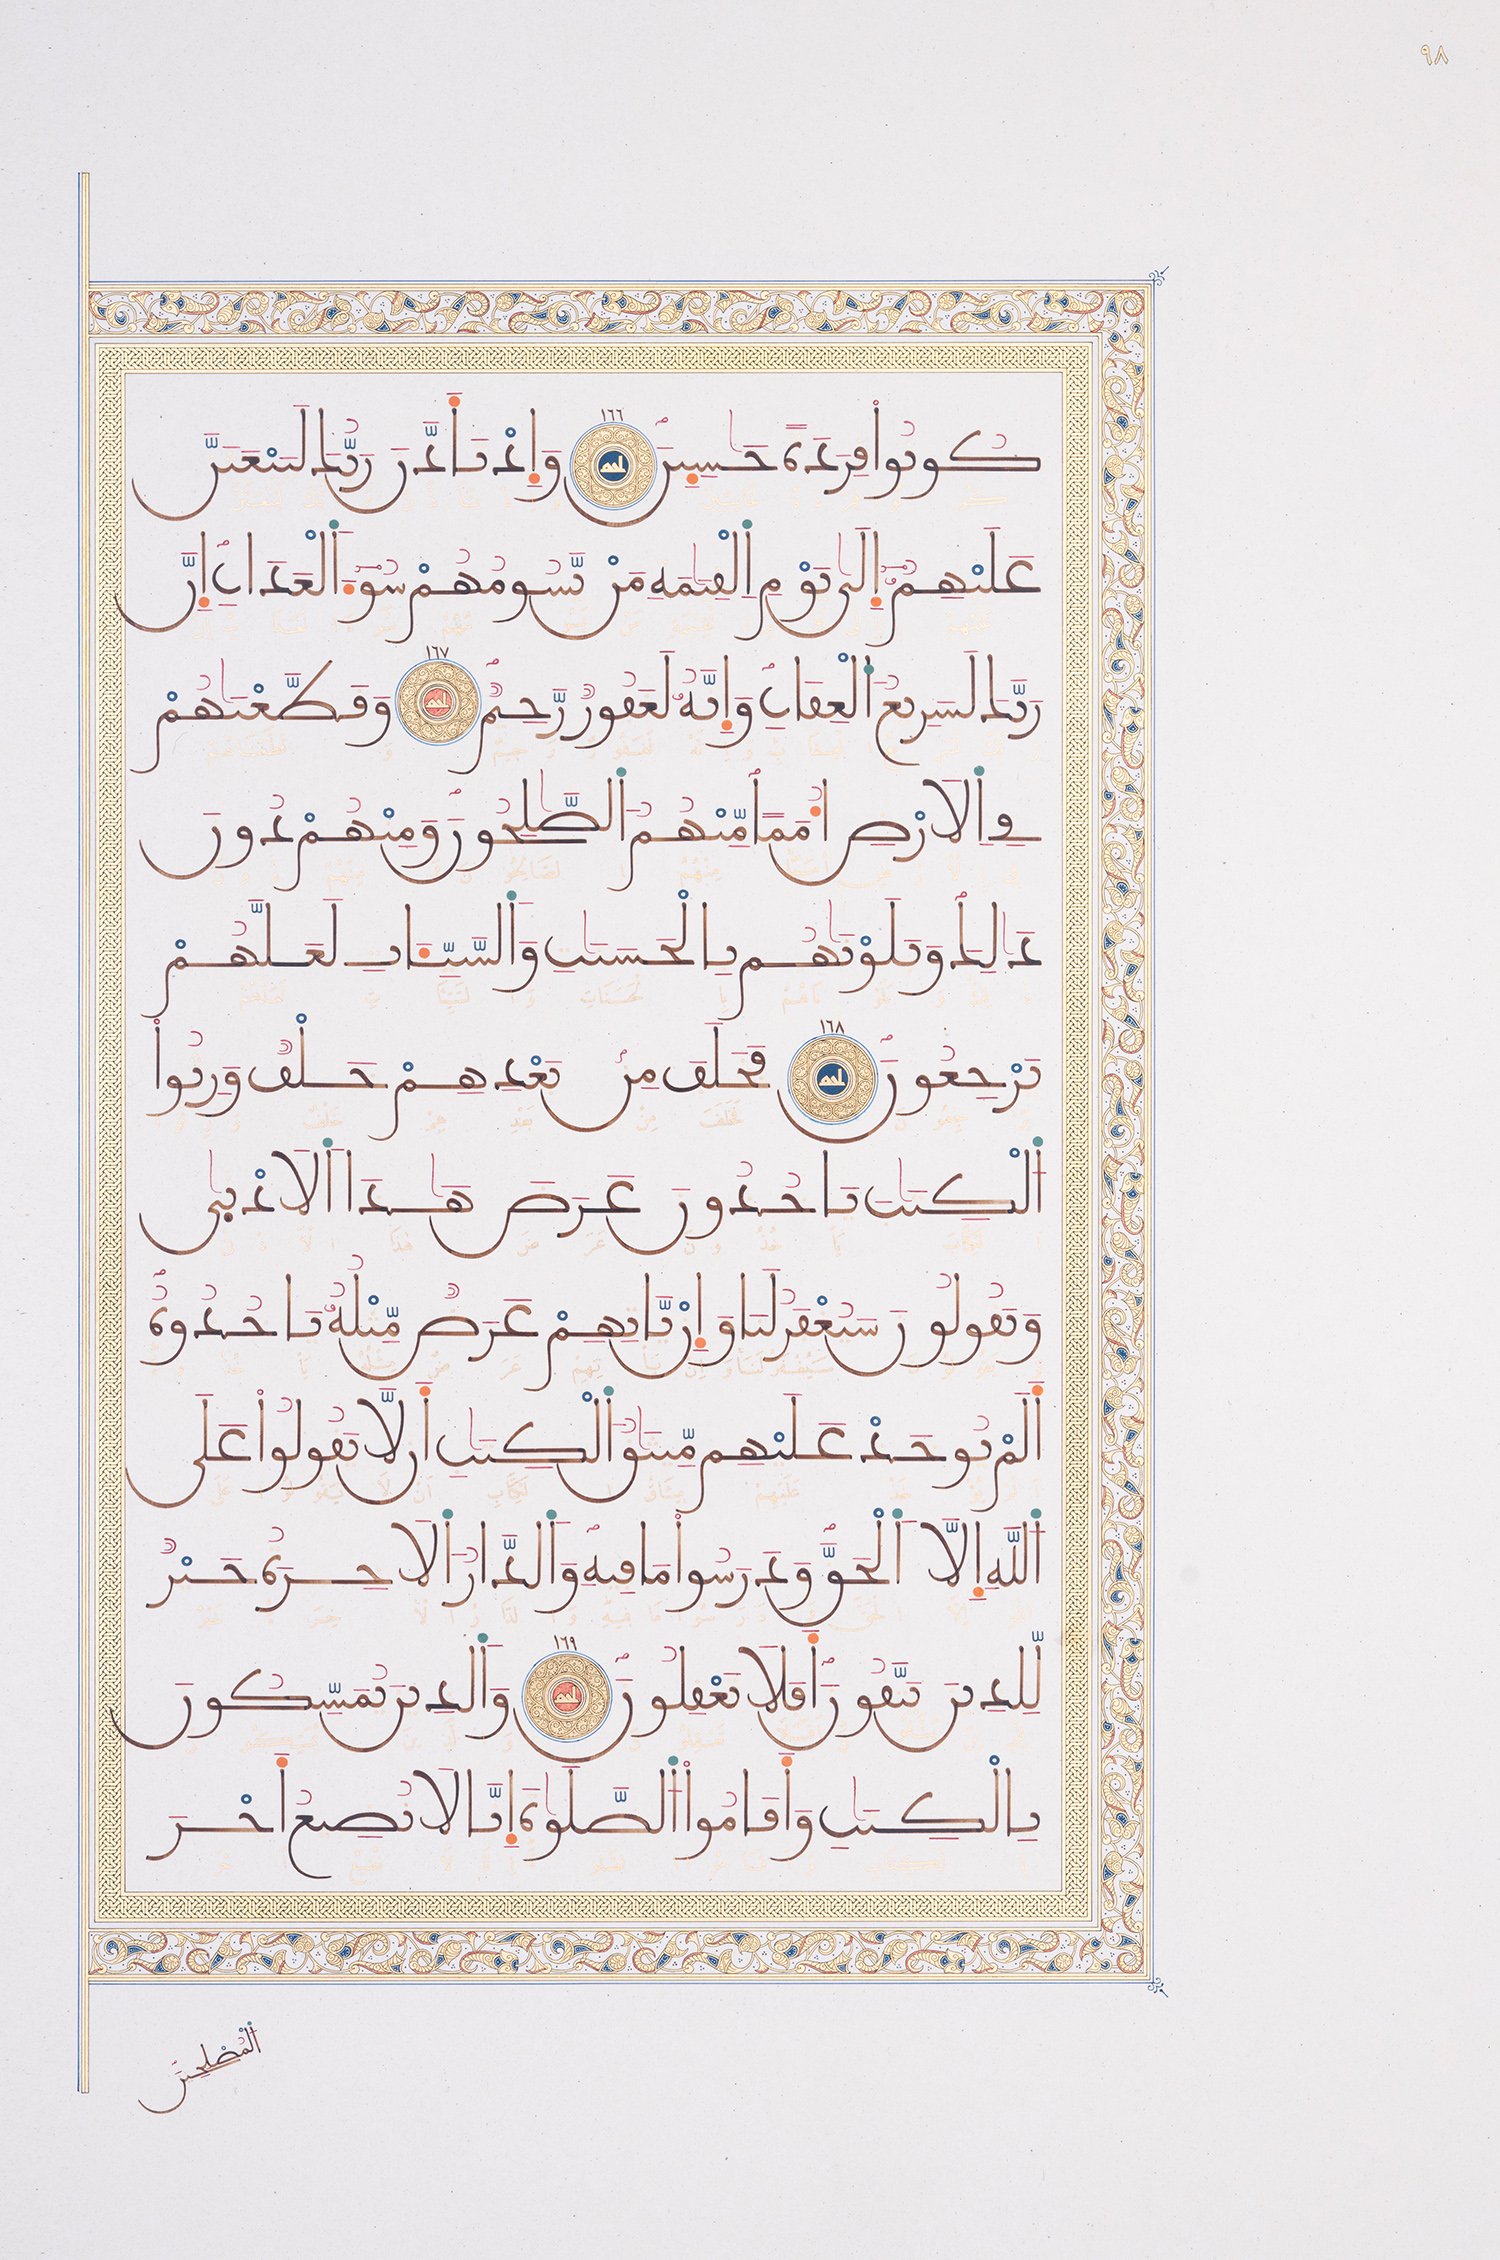 ٩٨
كُونُوا۟ قِرَدَةً خَـٰسِـِٔينَ ١٦٦ وَإِذْ تَأَذَّنَ رَبُّكَ لَيَبْعَثَنَّ
عَلَيْهِمُۥٓ إِلَىٰ يَوْمِ ٱلْقِيَـٰمَةِ مَنْ يَّسُومُهُمْ سُوٓءَ ٱلْعَذَابِ إِنَّ
رَبَّكَ لَسَرِيعُ ٱلْعِقَابِ وَإِنَّهُۥ لَغَفُورٌ رَّحِيمٌ ١٦٧ وَقَطَّعْنَـٰهُمْ
فِى ٱلَارْضِ أُمَمًا مِّنْهُمُ ٱلصَّـٰلِحُونَ وَمِنْهُمْ دُونَ
ذَٰلِكَ وَبَلَوْنَـٰهُم بِالْحَسَنَـٰتِ وَٱلسَّيِّـَٔاتِ لَعَلَّهُمْ
يَرْجِعُونَ ١٦٨ فَخَلَفَ مِنۢ بَعْدِهِمْ خَلْفٌ وَرِثُوا۟
ٱلْكِتَـٰبَ يَاخُذُونَ عَرَضَ هَـٰذَا ٱلَادْنىٰ
وَيَقُولُونَ سَيُغْفَرُ لَنَا وَإِنْ يَّاتِهِمْ عَرَضٌ مِّثْلُهُۥ يَاخُذُوهُ
أَلَمْ يُوخَذْ عَلَيْهِم مِّيثَـٰقُ ٱلْكِتَـٰبِ أَن لَّا يَقُولُوا۟ عَلَى
ٱللَّهِ إِلَّا ٱلْحَقَّ وَدَرَسُوا۟ مَا فِيهِ وَٱلدَّارُ ٱلَاخِرَةُ خَيْرٌ
لِّلَّذِينَ يَتَّقُونَ أَفَلَا تَعْقِلُونَ ١٦٩ وَٱلَّذِينَ يُمَسِّكُونَ
بِالْكِتَـٰبِ وَأَقَامُوا۟ ٱلصَّلَوٰةَ إِنَّا لَا نُضِيعُ أَجْرَ
ٱلْمُصْلِحِينَ